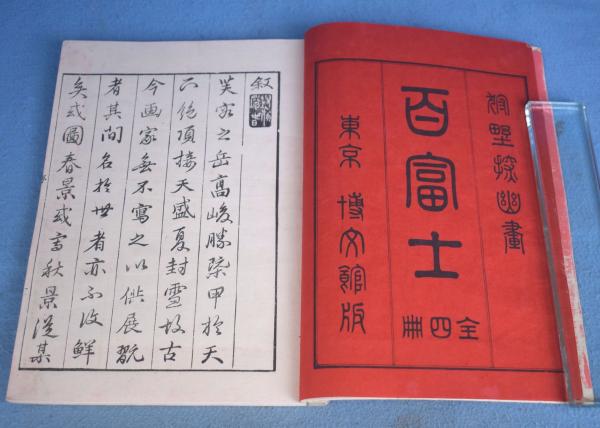 狩野探幽畫
百富士
全四冊
東京 博文館版
叙
芙容之岳高峻勝槩甲於天
下絶頂接天盛夏封雪故古
今画家無不寫之以供展翫
者其間名於世者亦不鮮
矣或圖春景或写秋景從其